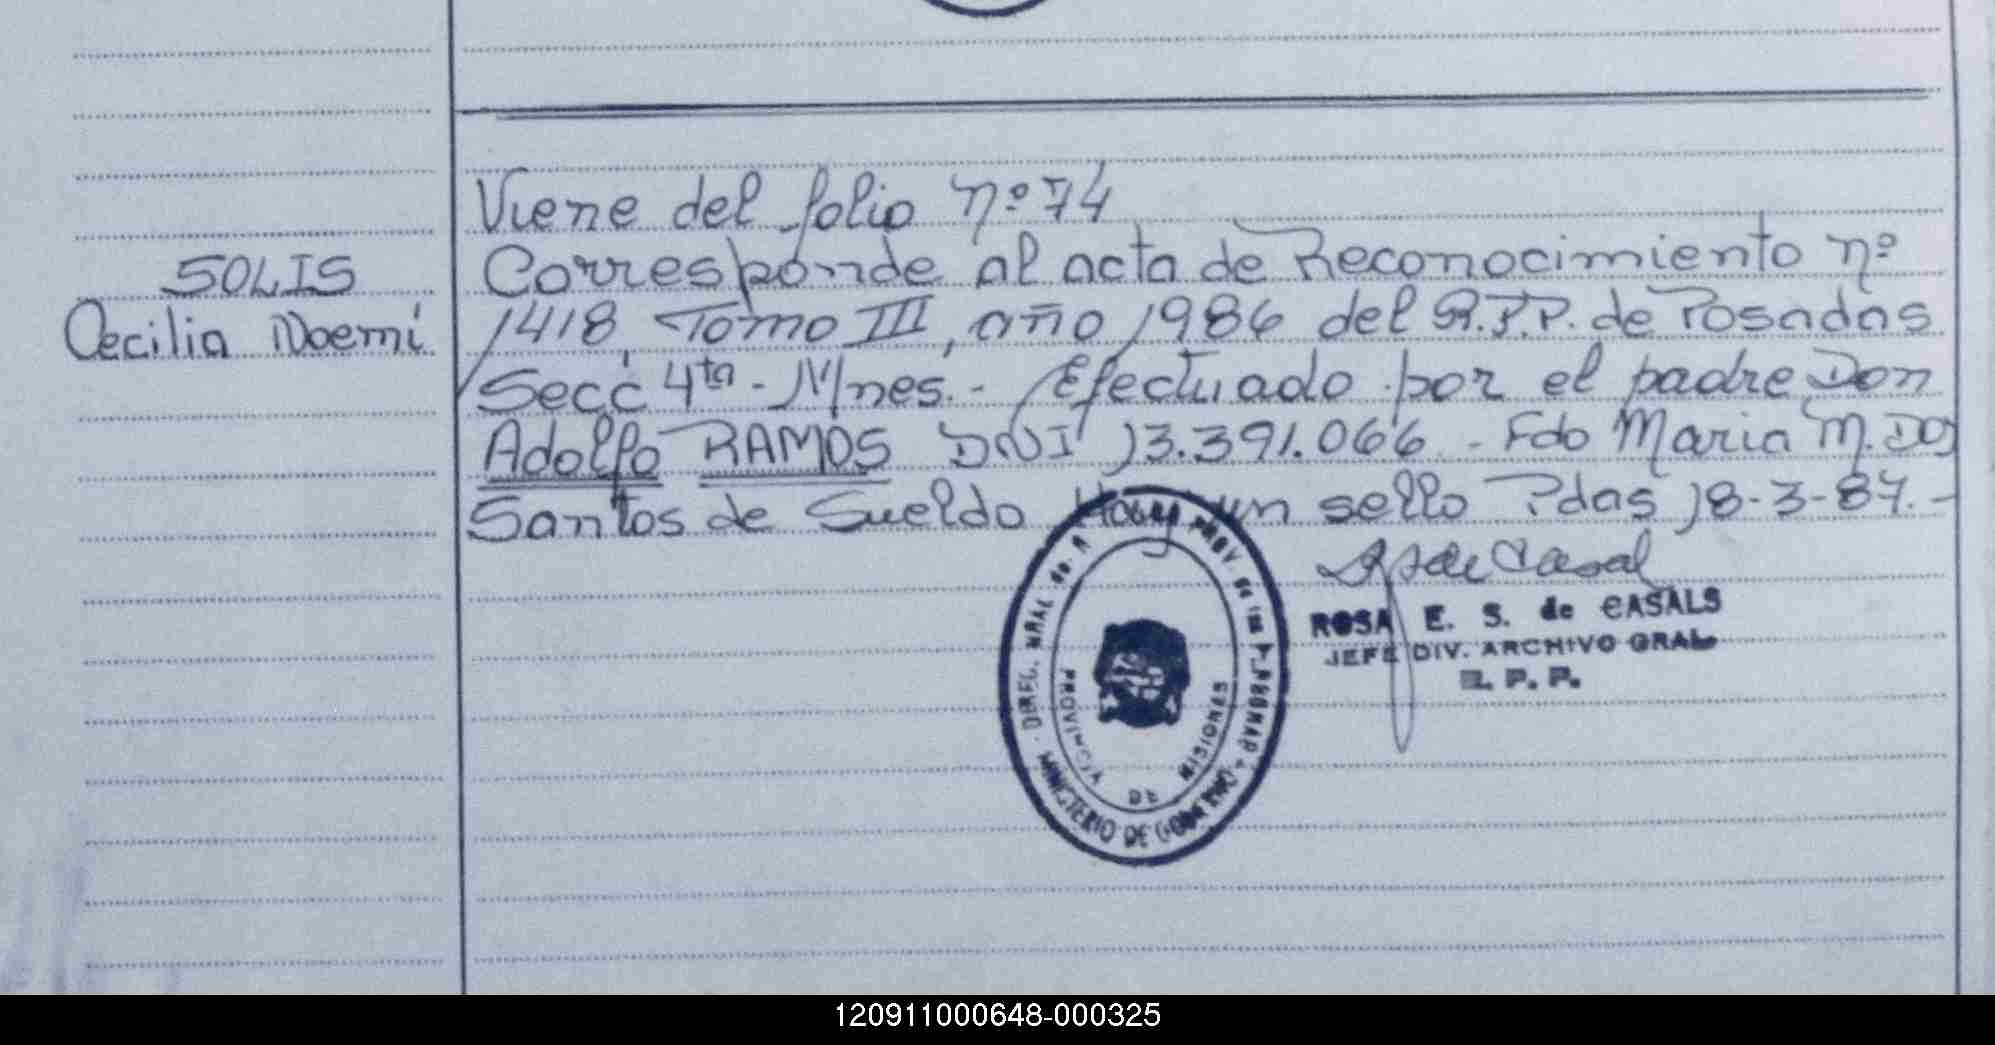 Viene del folio nº 74
SOLIS
Cecilia Noemí
Corresponde al acta de Reconocimiento nº
1418, Tomo III, año 1986 del R.P.P. de Posadas
Secc 4ta - Mnes. - Efectuado por el padre Don
Adolfo RAMOS DNI 13.391.066 - Fdo Maria M. Dos
Santos de Sueldo Hay un sello Pdas 18-3-87.-
ROSA E. S. de CASALS
JEFE DIV. ARCHIVO GRAL
R. P. P.
PROV. de las PERSONAS
MINISTERIO DE GOBIERNO
PROVINCIA DE MISIONES
120911000648-000325